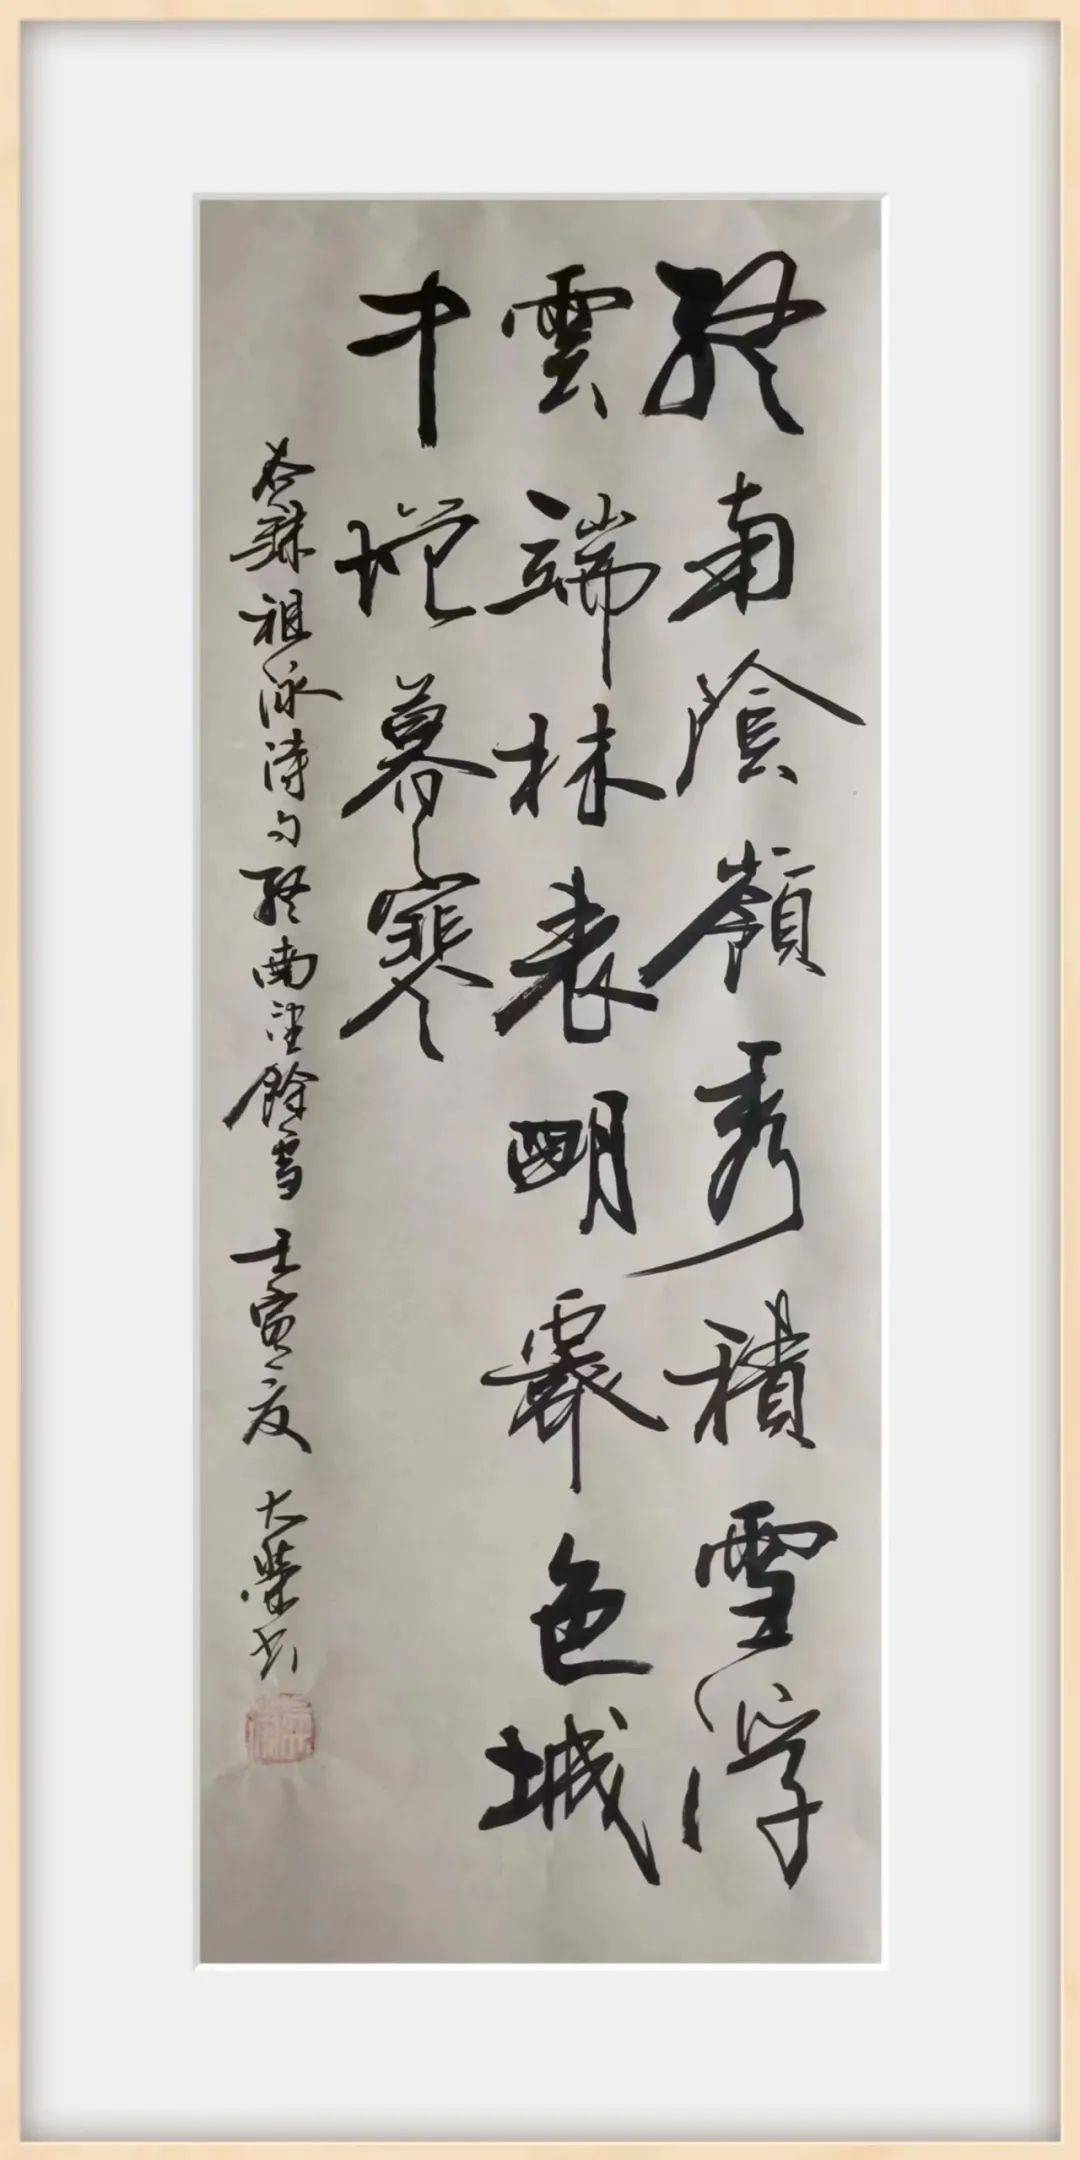 終南陰嶺秀積雪浮
雲端林表明霽色城
中增暮寒
祖詠詩句終南望餘雪 壬寅夏 大榮书